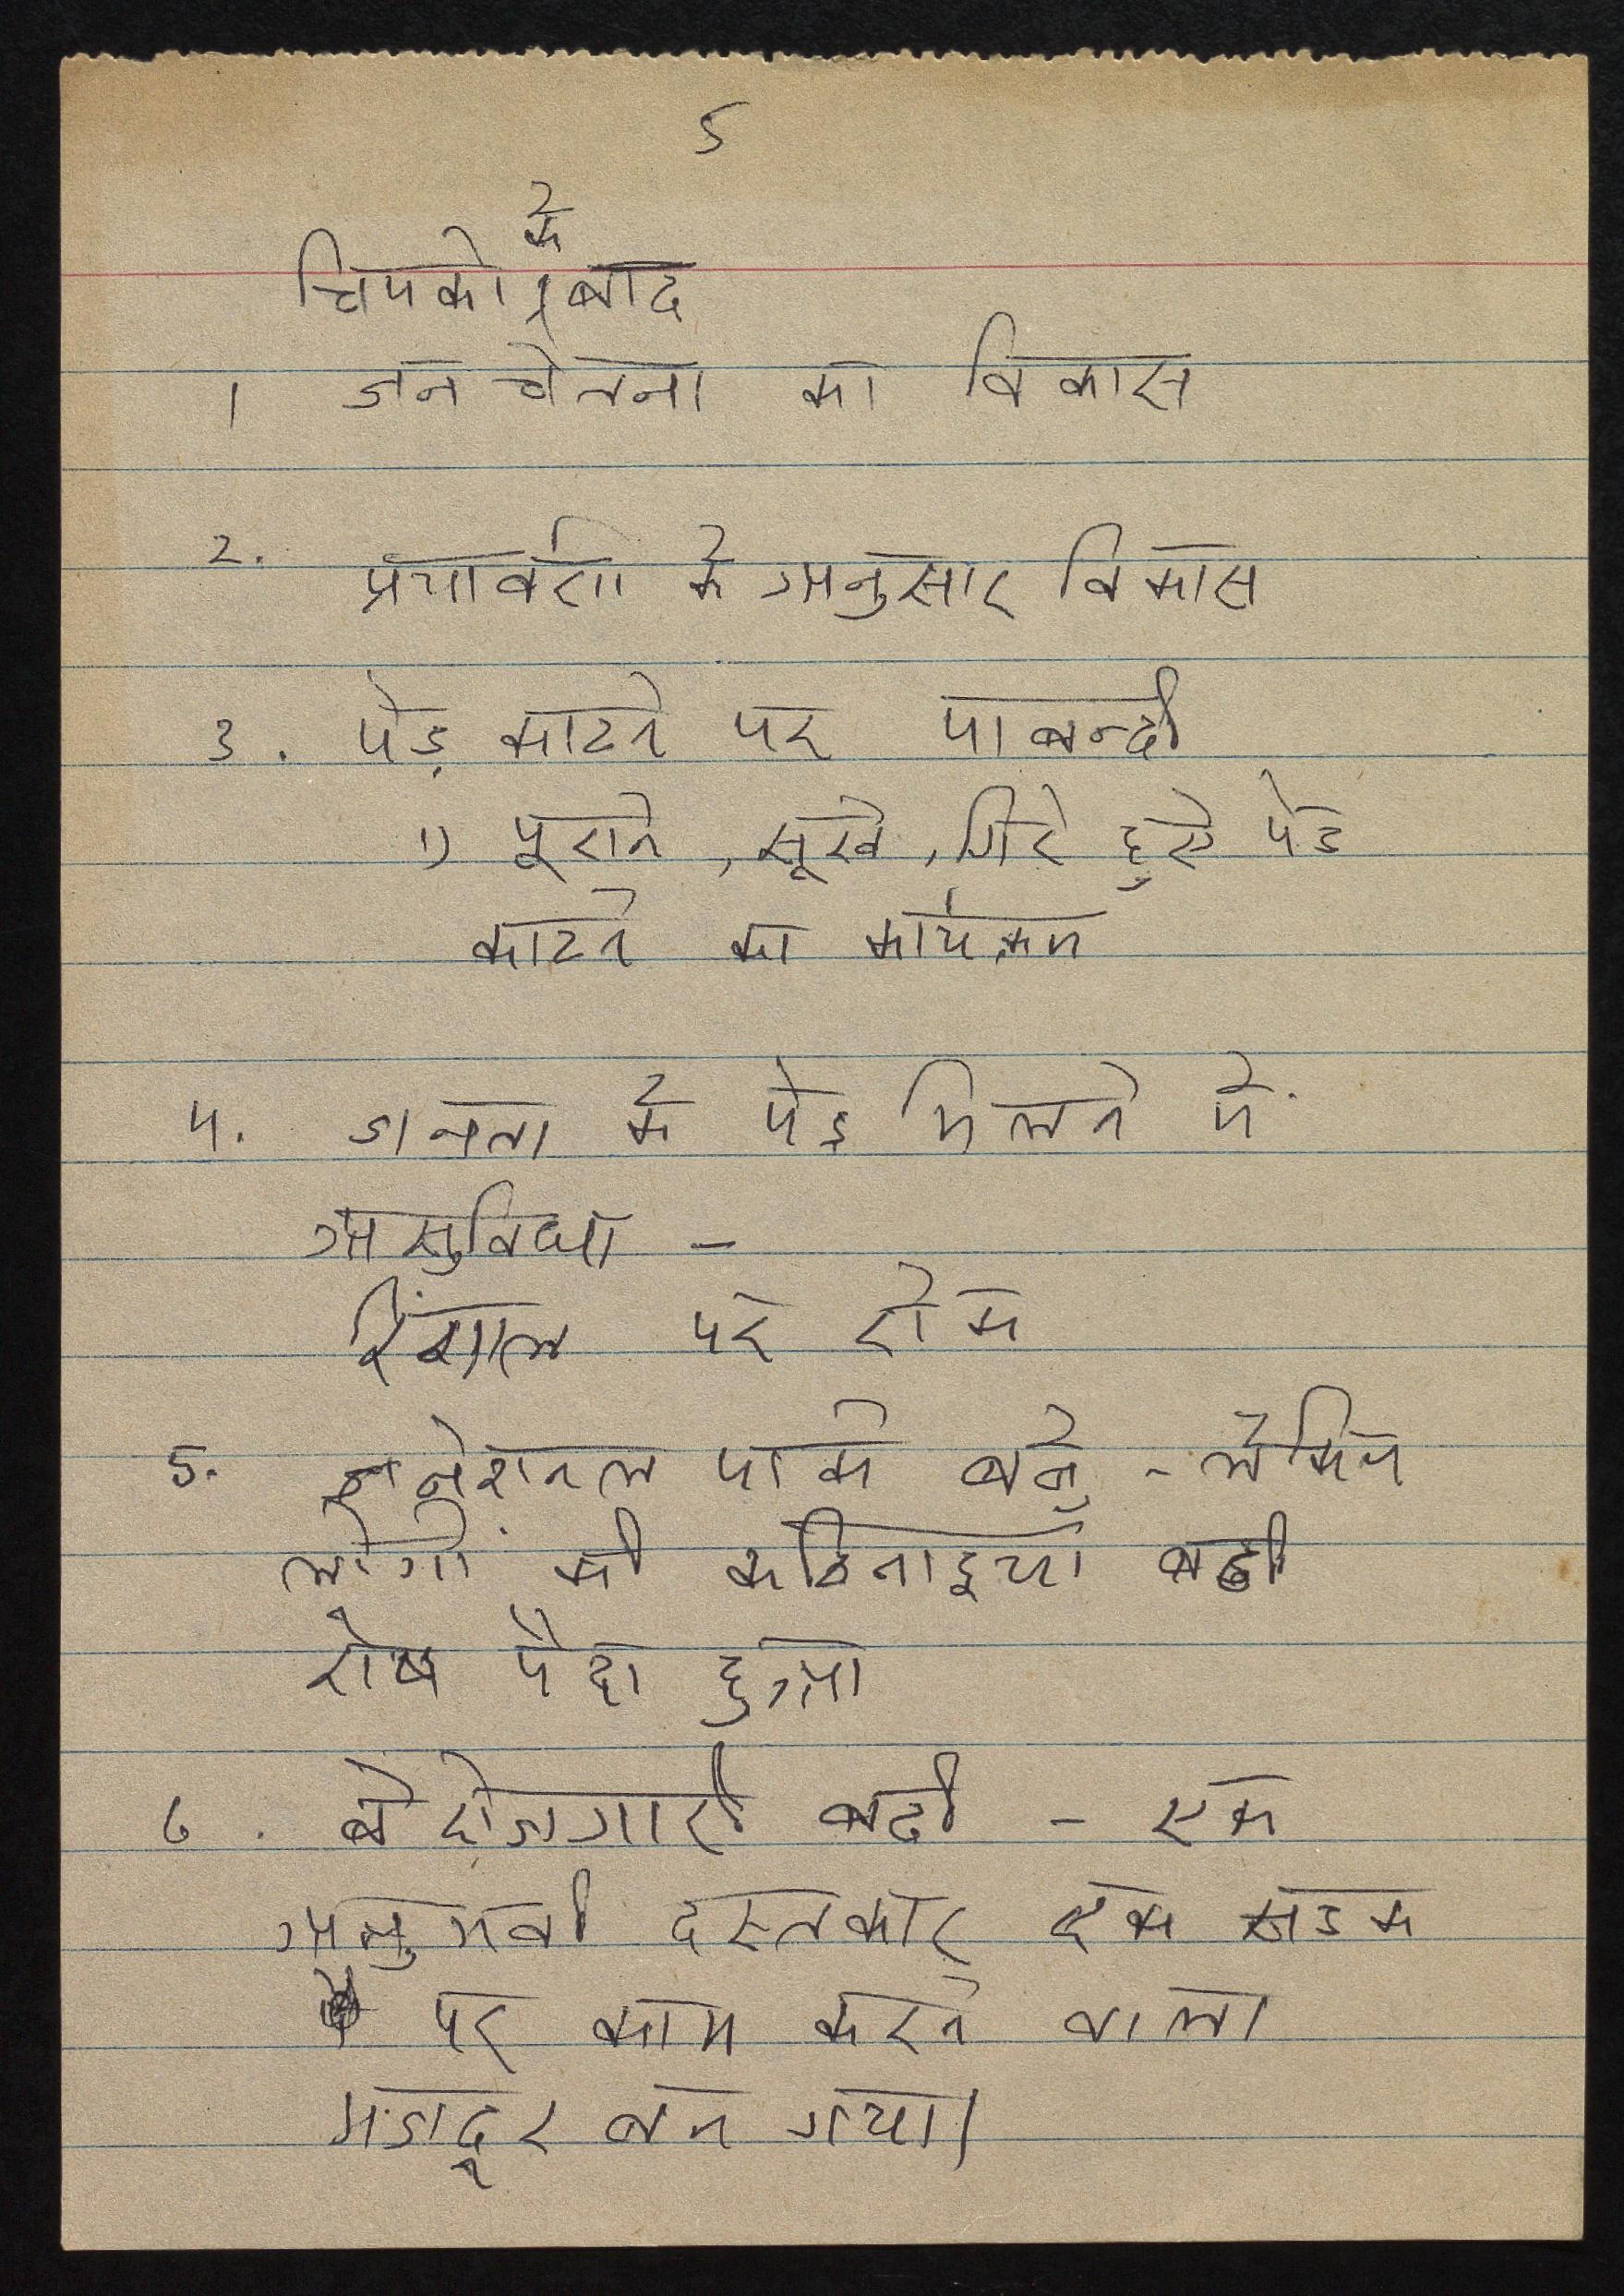 5
चिपको के बाद
1 जन चेतना का विकास
2. के अनुसार विकास
3. पेड़ काटने पर पाबन्दी
1) पूराने, सूखे, गिरे हुए पेड
काटने का कार्यक्रम
4. जनता के पेड़ मिलने में
असुविधा -
रिंगाल पर रोक
5. नेशनल पार्क बने - लेकिन
लोगों की कठिनाइयाँ बढी
रोष पैदा हुआ
6. बेरोजगारी बढी - एक
अनुभवी दस्तकार एक सडक
पर काम करने वाला
मजदूर बन गया।